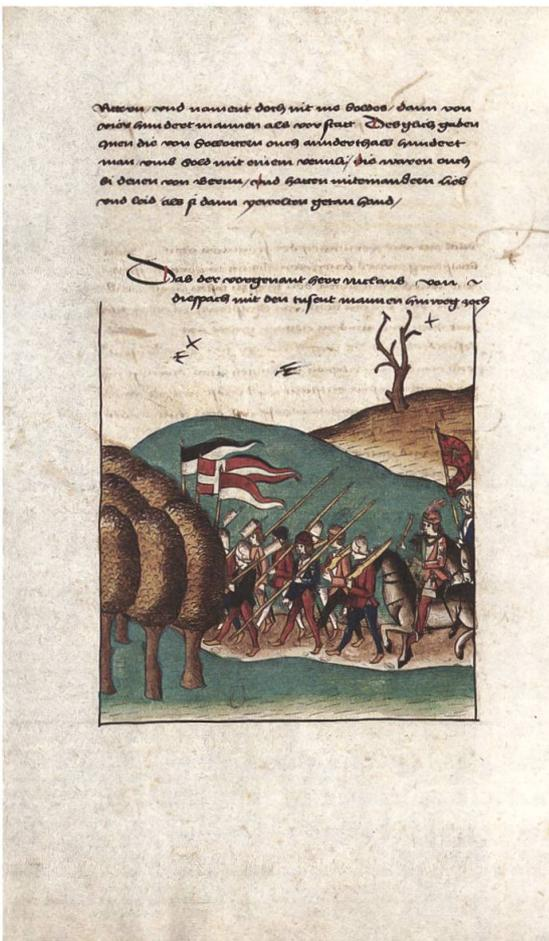 Bitten / vnd nament doch nit me soldes / dann von
vier hundert mannen als vor statt Desglich gaben
Inen die von Sollottern ouch annderthalb hundert
man / vmb Sold mit einem vennli / die waren ouch
bi denen von Bernn / vnd hatten miteinandern lieb
vnd leid / als si dann zewolten getan hand /
Das der vorgenant herr niclaus von
diespach mit den tusent mannen hinweg zoch